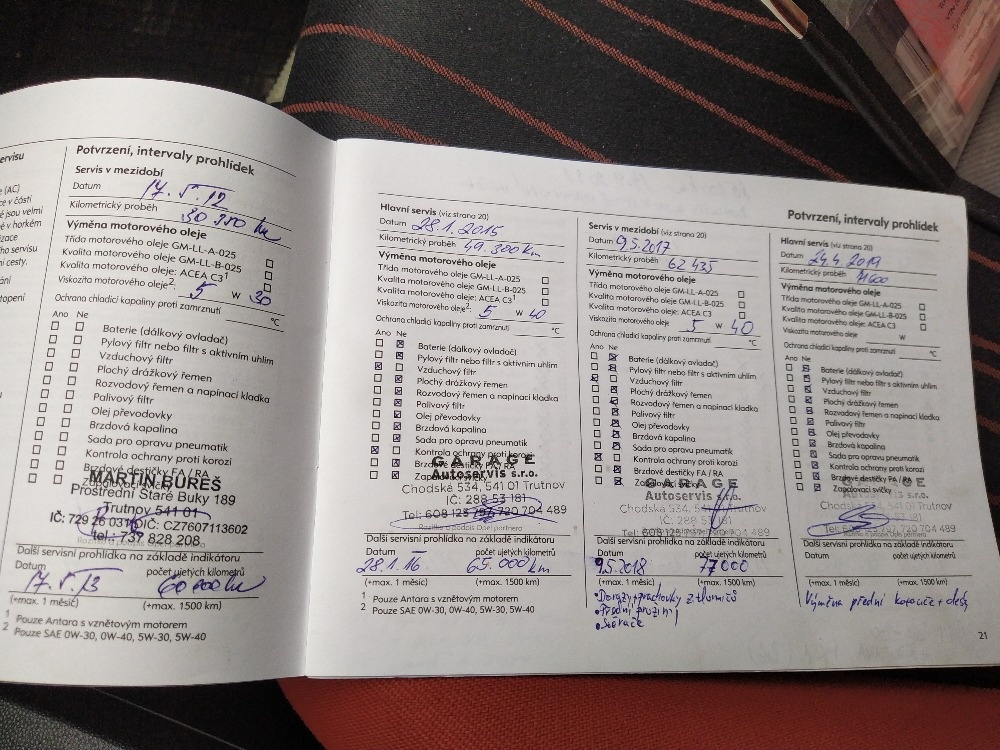 ervisu
(AC)
e v části
é jsou velmi
é v horkém
izace
ho servisu
í cesty.
ání
topení
Potvrzení, intervaly prohlídek
Servis v mezidobí
Datum 17. 5. 12
Kilometrický proběh 30 350 km
Výměna motorového oleje
Třída motorového oleje GM-LL-A-025
Kvalita motorového oleje GM-LL-B-025
Kvalita motorového oleje: ACEA C3¹
Viskozita motorového oleje²: 5 W 30
Ochrana chladicí kapaliny proti zamrznutí °C
Ano Ne
Baterie (dálkový ovladač)
Pylový filtr nebo filtr s aktivním uhlím
Vzduchový filtr
Plochý drážkový řemen
Rozvodový řemen a napínací kladka
Palivový filtr
Olej převodovky
Brzdová kapalina
Sada pro opravu pneumatik
Kontrola proti korozi
Brzdové destičky FA / RA
Zapalovací svíčky
MARTIN BUREŠ
Prostřední Staré Buky 189
Trutnov 541 01
DIČ: CZ7607113602
tel.: 737 828 208
Další servisní prohlídka na základě indikátoru
Datum počet ujetých kilometrů
17. 5. 13 60 000 km
(+max. 1 měsíc) (+max. 1500 km)
1 Pouze Antara s vznětovým motorem
2 Pouze SAE 0W-30, 0W-40, 5W-30, 5W-40
Potvrzení, intervaly prohlídek
Hlavní servis (viz strana 20)
Datum 28.1.2015
Kilometrický proběh 49.300 km
Výměna motorového oleje
Třída motorového oleje GM-LL-A-025
Kvalita motorového oleje GM-LL-B-025
Kvalita motorového oleje: ACEA C3¹
Viskozita motorového oleje²: 5 W 40
Ochrana chladicí kapaliny proti zamrznutí °C
Ano Ne
Baterie (dálkový ovladač)
Pylový filtr nebo filtr s aktivním uhlím
Vzduchový filtr
Plochý drážkový řemen
Rozvodový řemen a napínací kladka
Palivový filtr
Olej převodovky
Brzdová kapalina
Sada pro opravu pneumatik
Kontrola proti korozi
Brzdové destičky FA / RA
Zapalovací svíčky
GARAGE
Autoservis s.r.o.
Chodská 534, 541 01 Trutnov
IČ: 288 53 181
Tel: 608 123 797, 720 704 489
Razítko a podpis Opel partnera
Další servisní prohlídka na základě indikátoru
Datum počet ujetých kilometrů
28.1.16 65.000 km
(+max. 1 měsíc) (+max. 1500 km)
1 Pouze Antara s vznětovým motorem
2 Pouze SAE 0W-30, 0W-40, 5W-30, 5W-40
Servis v mezidobí (viz strana 20)
Datum 9.5.2017
Kilometrický proběh 62 435
Výměna motorového oleje
Třída motorového oleje GM-LL-A-025
Kvalita motorového oleje GM-LL-B-025
Kvalita motorového oleje: ACEA C3
Viskozita motorového oleje 5 W 40
Ochrana chladicí kapaliny proti zamrznutí °C
Ano Ne
Baterie (dálkový ovladač)
Pylový filtr nebo filtr s aktivním uhlím
Vzduchový filtr
Plochý drážkový řemen
Rozvodový řemen a napínací kladka
Palivový filtr
Olej převodovky
Brzdová kapalina
Sada pro opravu pneumatik
Kontrola proti korozi
Brzdové destičky FA / RA
Zapalovací svíčky
GARAGE
Autoservis s.r.o.
Chodská 534, 541 01 Trutnov
IČ: 288 53 181
Tel: 608 123 797, 720 704 489
Další servisní prohlídka na základě indikátoru
Datum počet ujetých kilometrů
9.5.2018 77000
(+max. 1 měsíc) (+max. 1500 km)
• Dorazy + prachovky z tlumičů
• Přední pružiny
Hlavní servis (viz strana 20)
Datum 24.4.2019
Kilometrický proběh 71600
Výměna motorového oleje
Třída motorového oleje GM-LL-A-025
Kvalita motorového oleje GM-LL-B-025
Kvalita motorového oleje: ACEA C3
Viskozita motorového oleje W
Ochrana chladicí kapaliny proti zamrznutí °C
Ano Ne
Baterie (dálkový ovladač)
Pylový filtr nebo filtr s aktivním uhlím
Vzduchový filtr
Plochý drážkový řemen
Rozvodový řemen a napínací kladka
Palivový filtr
Olej převodovky
Brzdová kapalina
Sada pro opravu pneumatik
Kontrola proti korozi
Brzdové destičky FA / RA
Zapalovací svíčky
GARAGE
Chodská 534, 541 01 Trutnov
720 704 489
Další servisní prohlídka na základě indikátoru
Datum počet ujetých kilometrů
(+max. 1 měsíc) (+max. 1500 km)
Výměna přední kotouče + desky
21